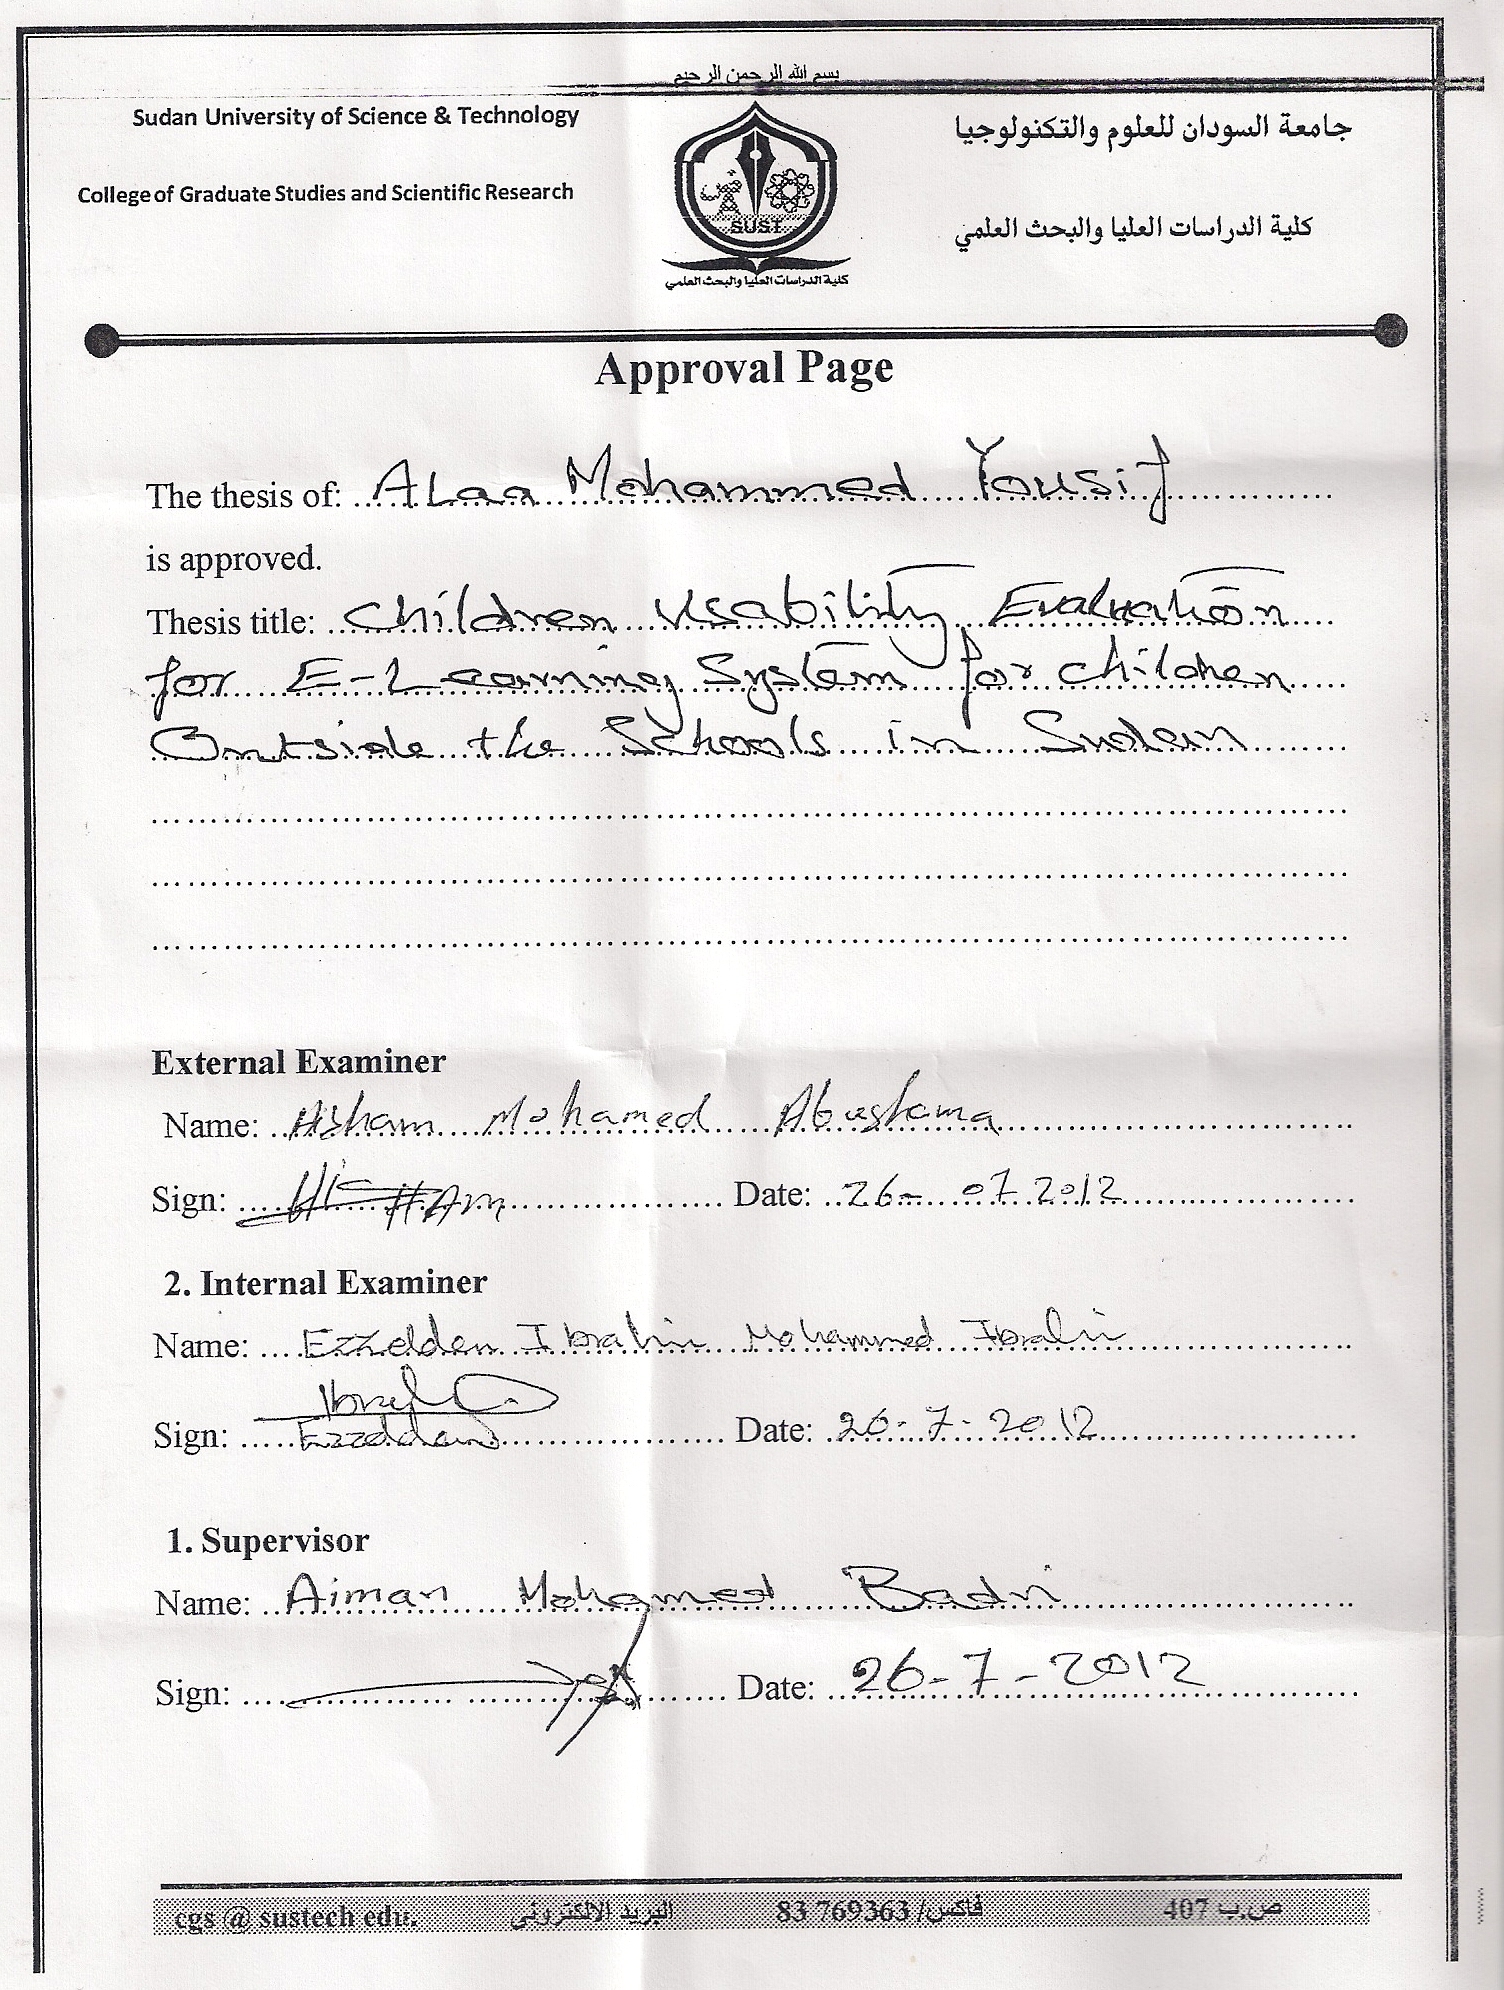 بسم الله الرحمن الرحيم
Sudan University of Science & Technology
جامعة السودان للعلوم والتكنولوجيا
College of Graduate Studies and Scientific Research
كلية الدراسات العليا والبحث العلمي
SUST
كلية الدراسات العليا والبحث العلمي
Approval Page
The thesis of: ALaa Mohammed Yousif
is approved.
Thesis title: Children Usability Evaluation
for E-Learning System for children
Outside the Schools in Sudan
External Examiner
Name: Hisham Mohamed Abushama
Sign: HISHAM Date: 26- 07 2012
2. Internal Examiner
Name: Ezzelden Ibrahim Mohammed Ibrahim
Sign: Date: 26-7-2012
1. Supervisor
Name: Aiman Mohamed Badri
Sign: Date: 26-7-2012
cgs @ sustech edu. البريد الالكتروني فاكس/ 83 769363 ص.ب 407